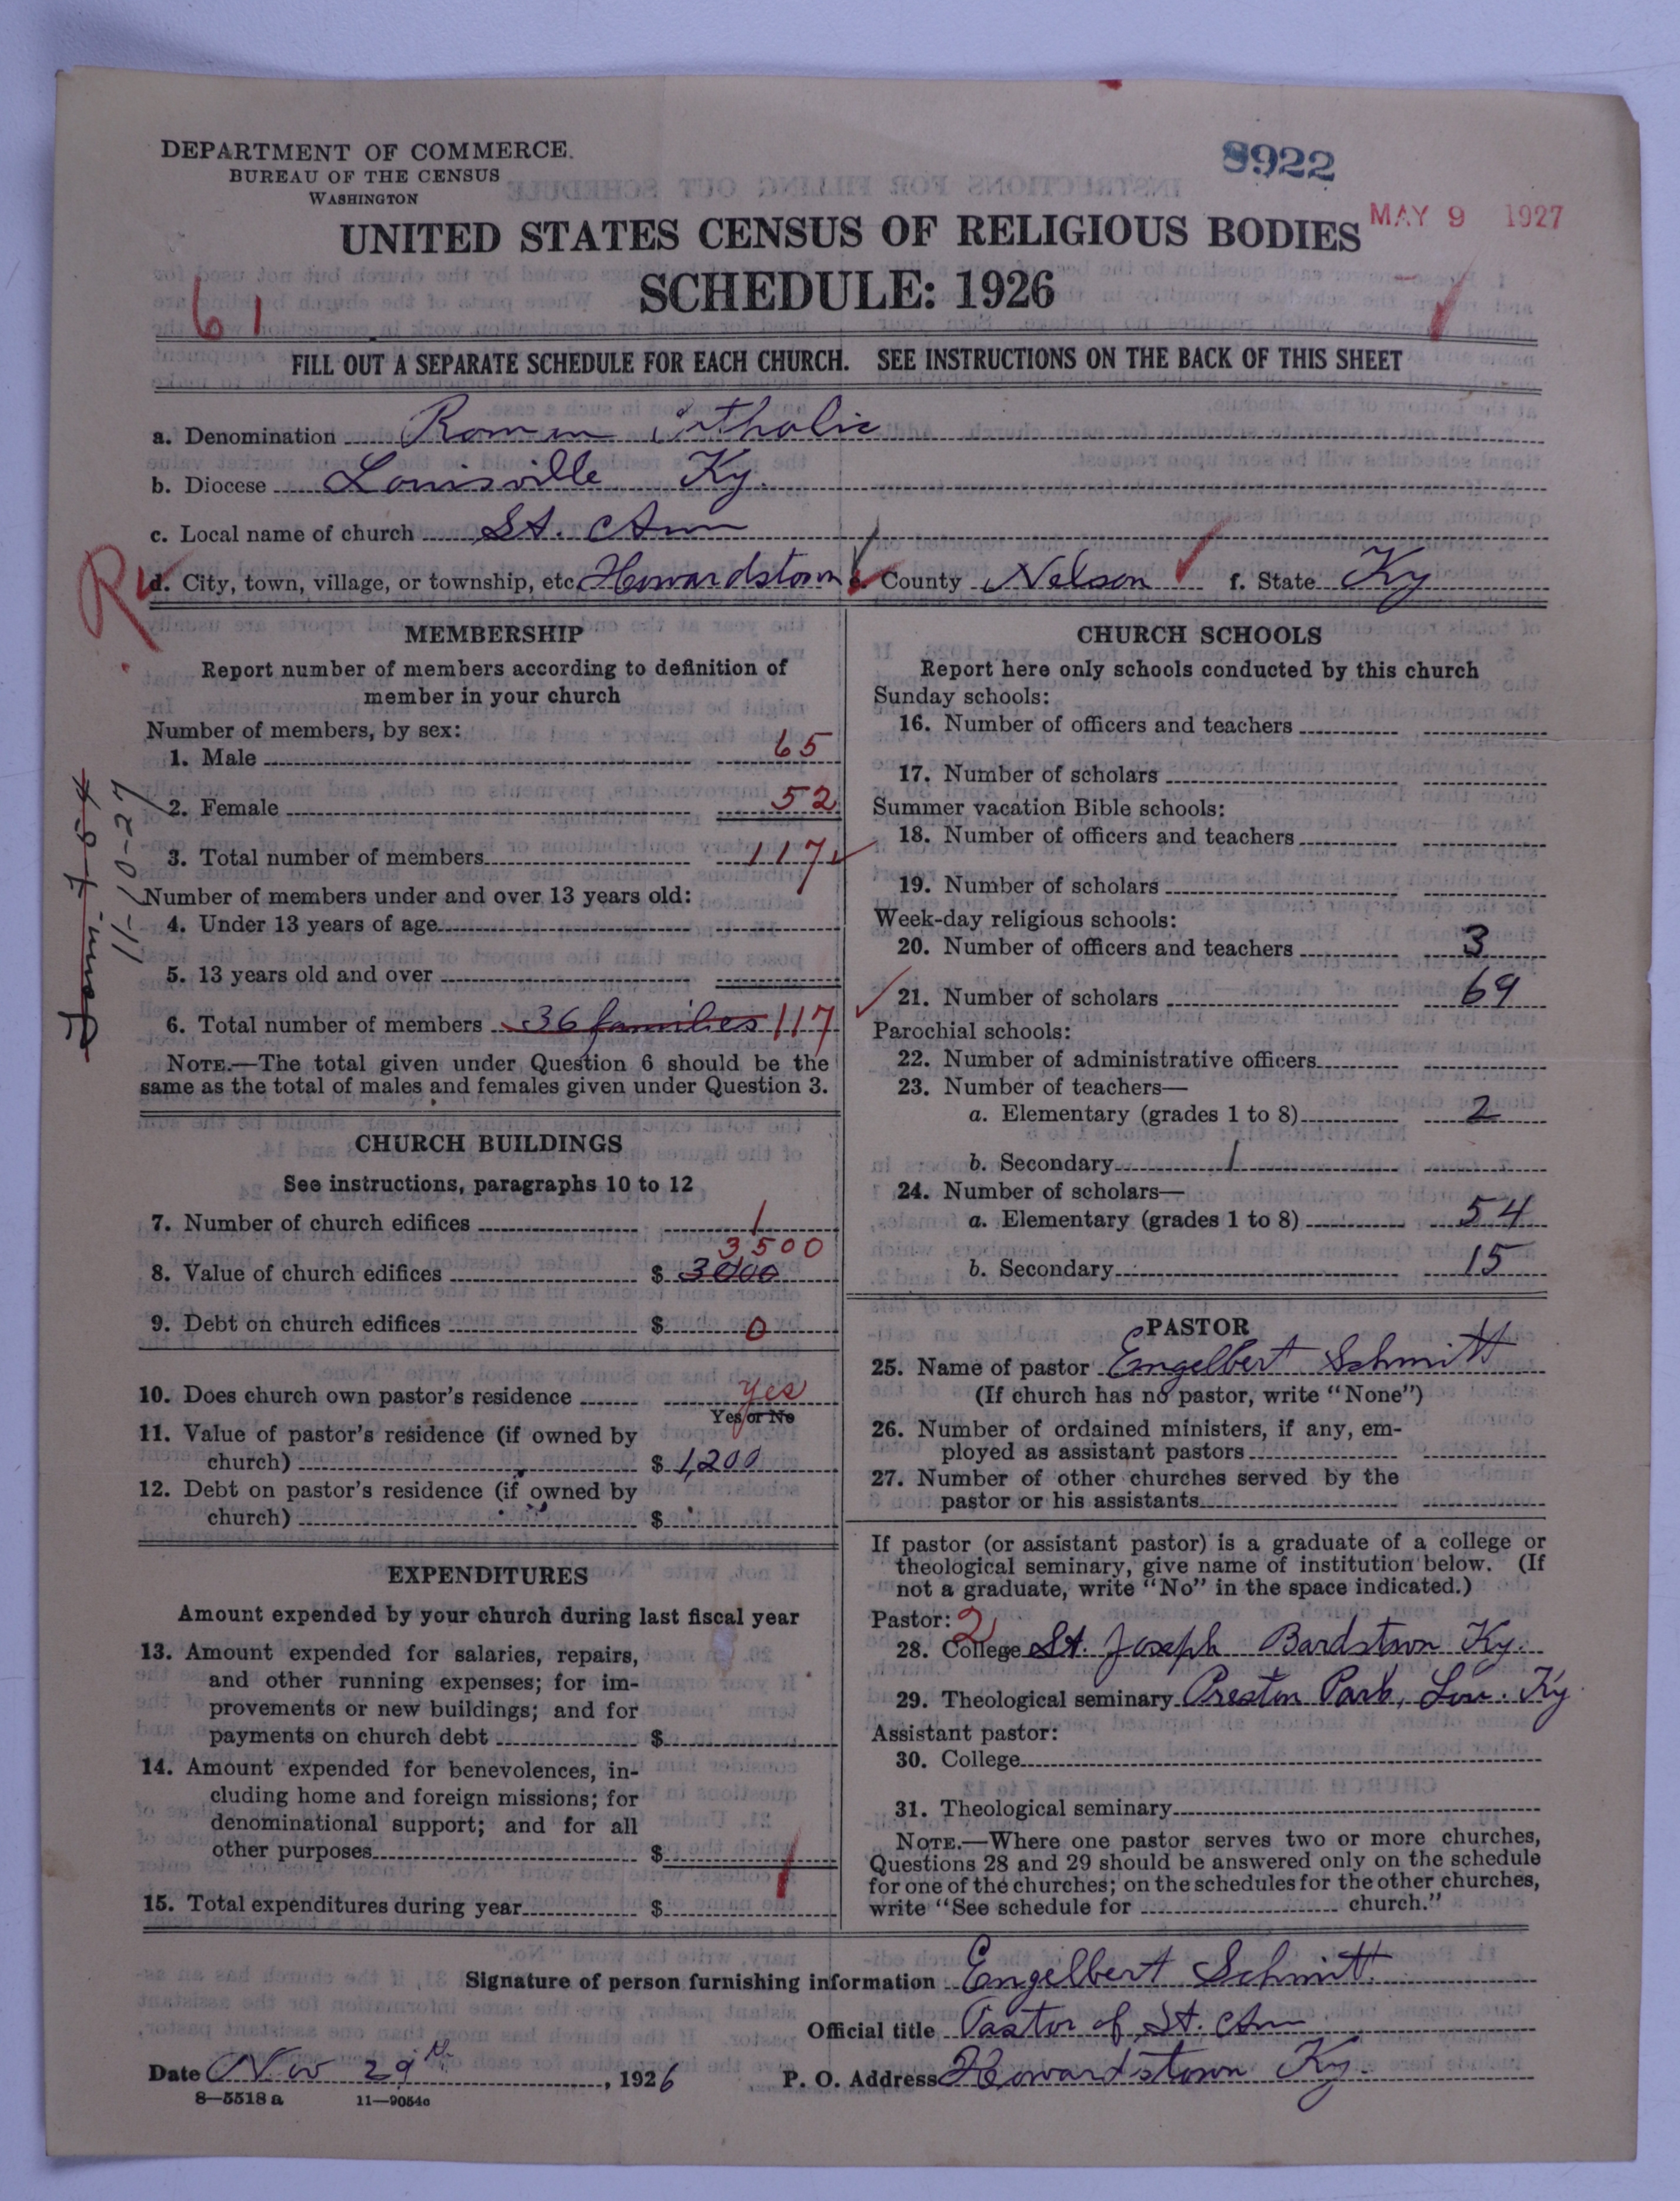 DEPARTMENT OF COMMERCE.
BUREAU OF THE CENSUS
WASHINGTON
8922
MAY 9 1927
UNITED STATES CENSUS OF RELIGIOUS BODIES
SCHEDULE: 1926
61
FILL OUT A SEPARATE SCHEDULE FOR EACH CHURCH. SEE INSTRUCTIONS ON THE BACK OF THIS SHEET
a. Denomination Roman Catholic
b. Diocese Louisville Ky.
c. Local name of church St. Ann
d. City, town, village, or township, etc. Howardstown e. County Nelson f. State Ky
MEMBERSHIP
Report number of members according to definition of
member in your church
Number of members, by sex:
1. Male 65
2. Female 52
3. Total number of members 117
11-10-27
Number of members under and over 13 years old:
4. Under 13 years of age
5. 13 years old and over
6. Total number of members 36 families 117
NOTE.—The total given under Question 6 should be the
same as the total of males and females given under Question 3.
CHURCH BUILDINGS
See instructions, paragraphs 10 to 12
7. Number of church edifices 1
3,500
8. Value of church edifices $ 3000
9. Debt on church edifices $ 0
10. Does church own pastor's residence yes
Yes or No
11. Value of pastor's residence (if owned by
church) $ 1,200
12. Debt on pastor's residence (if owned by
church) $
EXPENDITURES
Amount expended by your church during last fiscal year
13. Amount expended for salaries, repairs,
and other running expenses; for im-
provements or new buildings; and for
payments on church debt $
14. Amount expended for benevolences, in-
cluding home and foreign missions; for
denominational support; and for all
other purposes $
15. Total expenditures during year $
CHURCH SCHOOLS
Report here only schools conducted by this church
Sunday schools:
16. Number of officers and teachers
17. Number of scholars
Summer vacation Bible schools:
18. Number of officers and teachers
19. Number of scholars
Week-day religious schools:
20. Number of officers and teachers 3
21. Number of scholars 69
Parochial schools:
22. Number of administrative officers
23. Number of teachers—
a. Elementary (grades 1 to 8) 2
b. Secondary 1
24. Number of scholars—
a. Elementary (grades 1 to 8) 54
b. Secondary 15
PASTOR
25. Name of pastor Engelbert Schmitt
(If church has no pastor, write "None")
26. Number of ordained ministers, if any, em-
ployed as assistant pastors
27. Number of other churches served by the
pastor or his assistants
If pastor (or assistant pastor) is a graduate of a college or
theological seminary, give name of institution below. (If
not a graduate, write "No" in the space indicated.)
Pastor: 2
28. College St. Joseph Bardstown Ky.
29. Theological seminary Preston Park, Lou. Ky
Assistant pastor:
30. College
31. Theological seminary
NOTE.—Where one pastor serves two or more churches,
Questions 28 and 29 should be answered only on the schedule
for one of the churches; on the schedules for the other churches,
write "See schedule for church."
Signature of person furnishing information Engelbert Schmitt
Official title Pastor of St. Ann
Date Nov 29th, 1926 P. O. Address Howardstown Ky.
8—5518 a 11—9054c